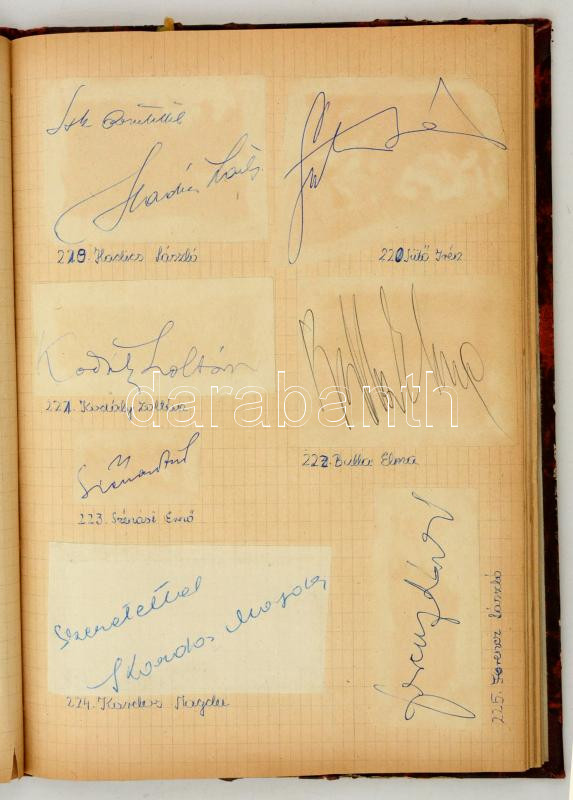 Hadics László
219. Hadics László
220 Sütő Irén
Kodály Zoltán
221. Kodály Zoltán
Bulla Elma
222. Bulla Elma
223. Szénási Ernő
Szeretettel
Kardos Magda
224. Kardos Magda
Ferencz László
225. Ferencz László
darabanth